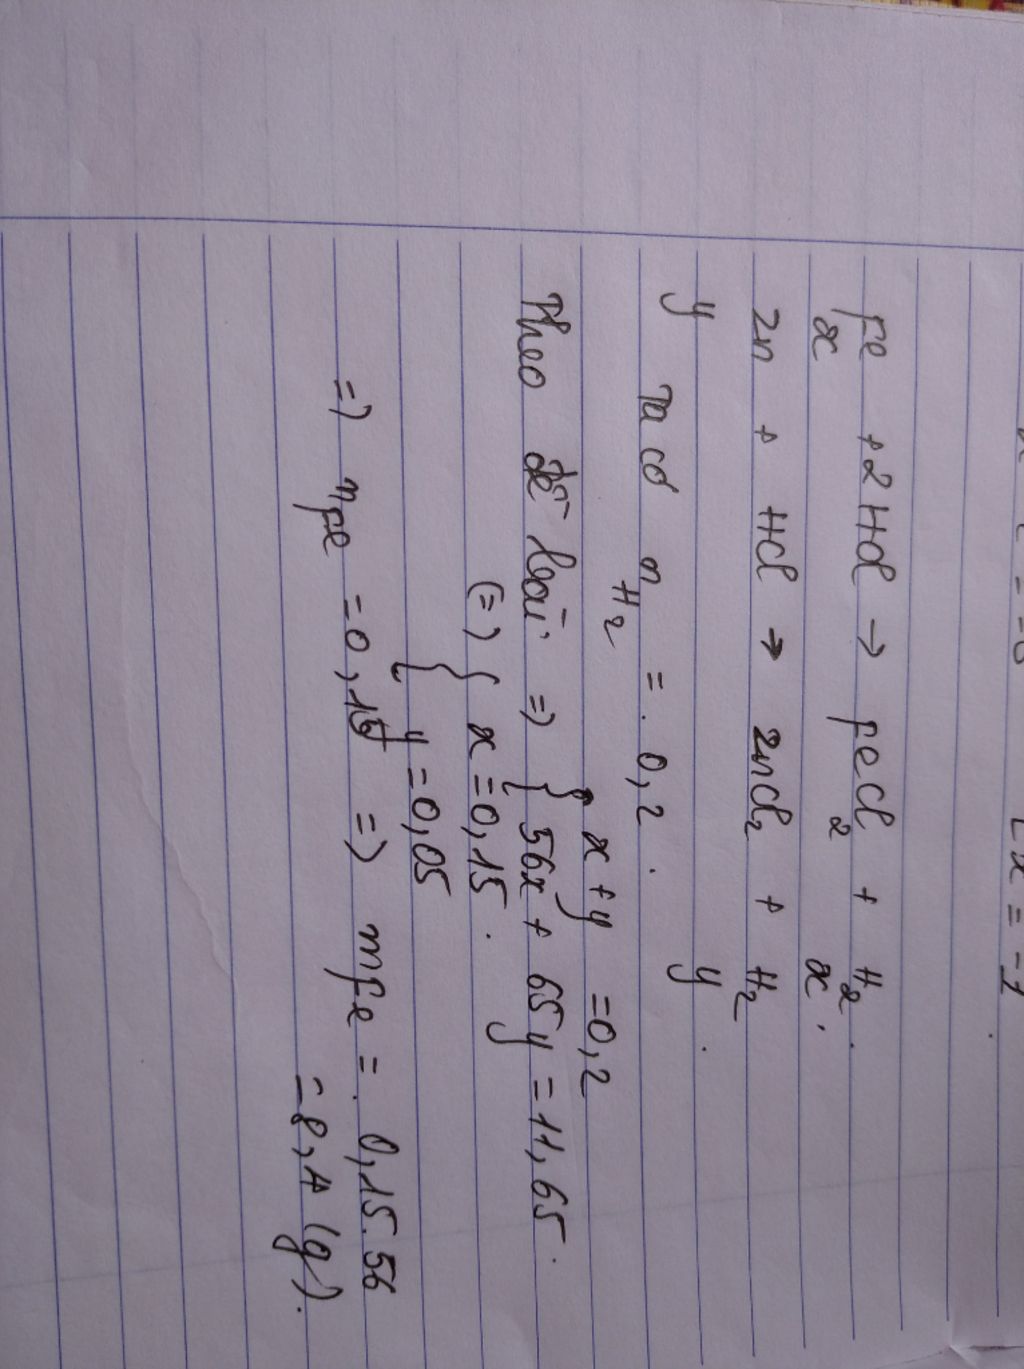 Fe + 2HCl → FeCl2 + H2.
x x.
Zn + HCl → ZnCl2 + H2
y y.
Ta có nH2 = 0,2.
Theo đề bài: => { x + y = 0,2
56x + 65y = 11,65.
(=) { x = 0,15.
y = 0,05
=) nFe = 0,15 =) mFe = 0,15.56
= 8,4 (g).